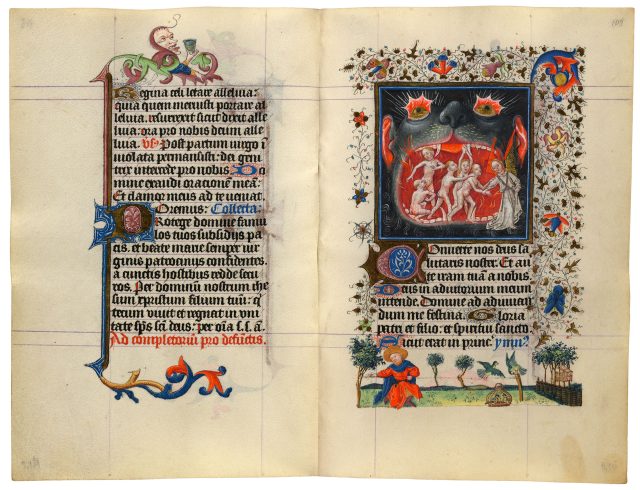 Regina celi letare alleluia:
quia quem meruisti portare al
leluia. resurrexit sicut dixit alle
luia: ora pro nobis deum alle
luia. V͞s. Post partum virgo i͞
uiolata permansisti: dei geni
trix intercede pro nobis. Do
mine exaudi orationē meā:
Et clamor meus ad te ueniat.
Oremus: Collecta:
Protege domine famu
los tuos subsidijs pa
cis. et beate marie semper vir
ginis patrocinijs confidentes.
a cunctis hostibus redde secu
ros. Per dominū nostrum ihe
sum xpristum filium tuū: q̄
tecum viuit et regnat in vni
tate sp̄s sc̄i deus: per oīa s. s. ā.
Ad completoriū pro defūctis.
Conuerte nos deus sa
lutaris noster. Et au
erte iram tuā a nobis.
Deus in adiutorium meum
intende. Domine ad adiuuan
dum me festina. Gloria
patri et filio: et spiritui sancto
Sicut erat in princ̄. ymn̄⁹